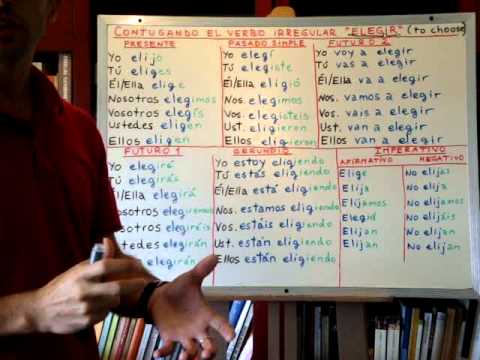 CONJUGANDO EL VERBO IRREGULAR "ELEGIR" (to choose)
PRESENTE
Yo elijo
Tú eliges
Él/Ella elige
Nosotros elegimos
Vosotros elegís
Ustedes eligen
Ellos eligen
PASADO SIMPLE
Yo elegí
Tú elegiste
Él/Ella eligió
Nos. elegimos
Vos. elegisteis
Ust. eligieron
Ellos eligieron
FUTURO 2
Yo voy a elegir
Tú vas a elegir
Él/Ella va a elegir
Nos. vamos a elegir
Vos. vais a elegir
Ust. van a elegir
Ellos van a elegir
FUTURO 1
Yo elegiré
Tú elegirás
Él/Ella elegirá
osotros elegiremos
osotros elegiréis
tedes elegirán
elegirán
GERUNDIO
Yo estoy eligiendo
Tú estás eligiendo
Él/Ella está eligiendo
Nos. estamos eligiendo
Vos. estáis eligiendo
Ust. están eligiendo
Ellos están eligiendo
IMPERATIVO
AFIRMATIVO
Elige
Elija
Elijamos
Elegid
Elijan
Elijan
NEGATIVO
No elijas
No elija
No elijamos
No elijáis
No elijan
No elijan